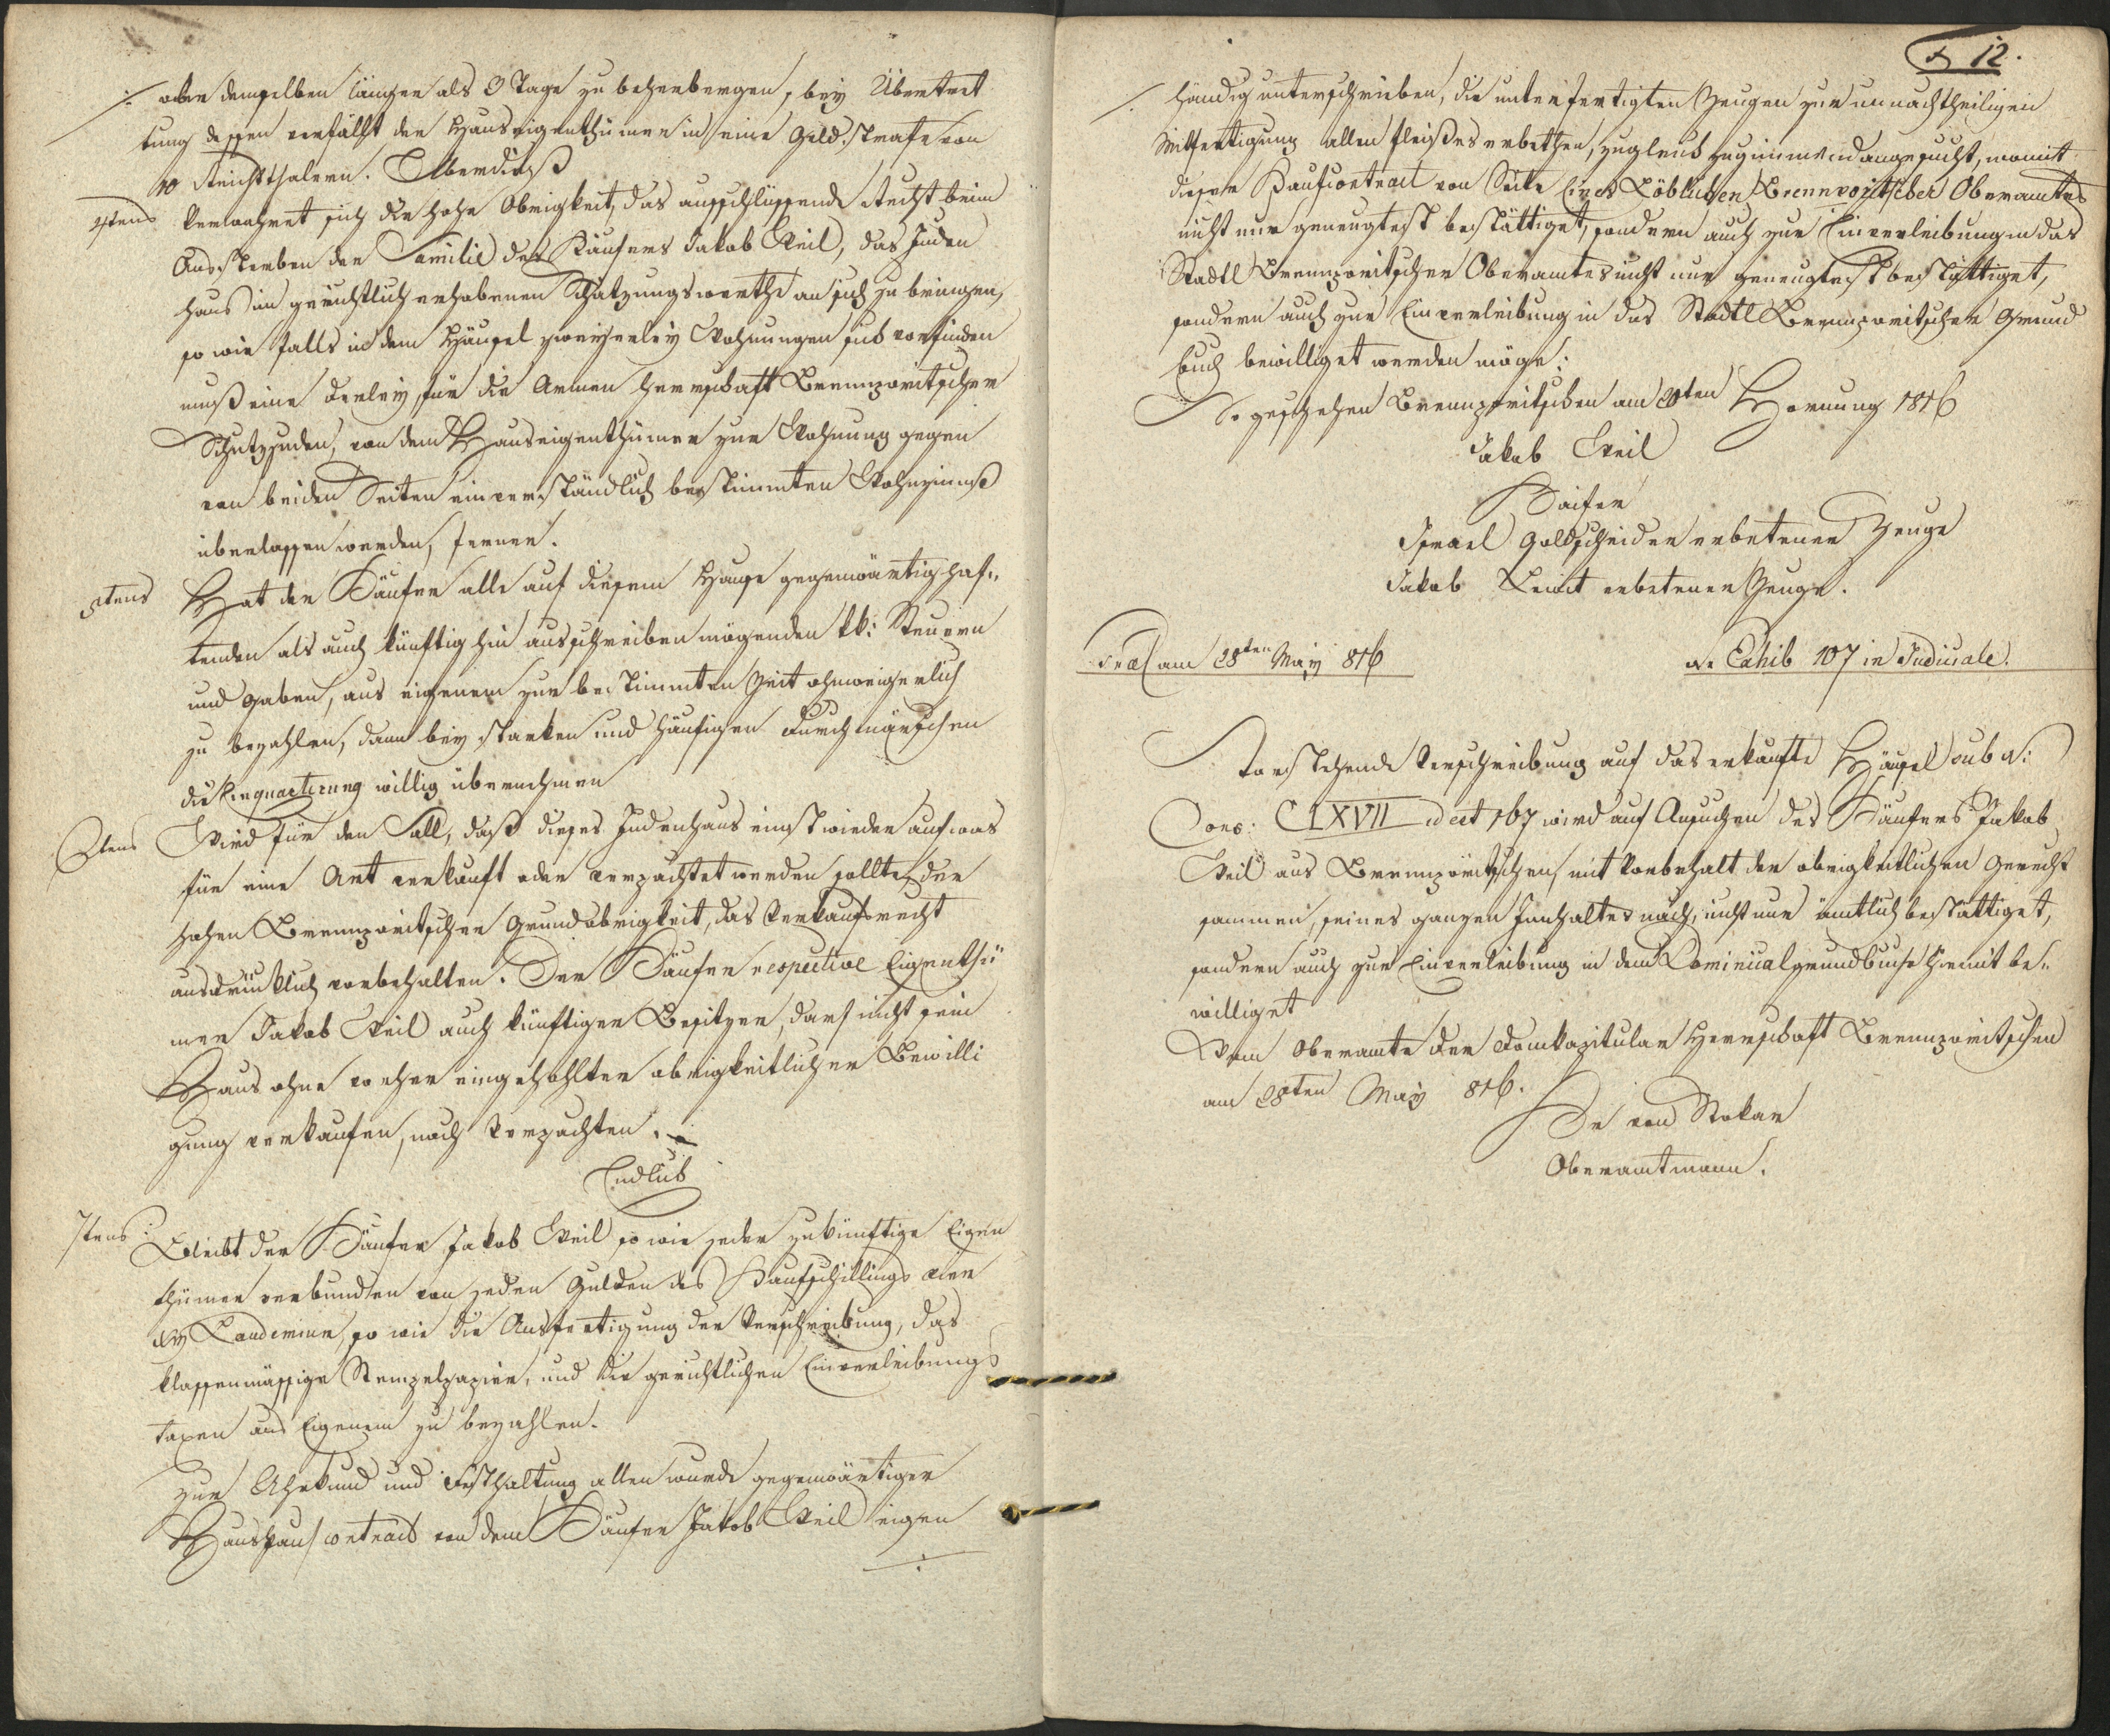 ./. oder demselben länger als 3 Tage zu beherbergen, bey Übertret
tung dessen verfällt der Hauseigenthümer in eine Geld:strafe von
10 Reichsthalern. Überdieß
4tens verwahret sich die hohe Obrigkeit, das ausschlüssende Recht beim
Aussterben der Familie des Käufers Jakob Weil, das Juden
haus im gerichtlich erhobenen Schatzungswerthe an sich zu bringen,
so wie falls in dem Häusel zweyerley Wohnungen sich vorfinden
muß eine derley für die Armen herrschaft Brennporitscher
Schutzjuden, von dem Hauseigenthümer zur Wohnung gegen
von beiden Seiten einverständlich bestimmten Wohnzinnß
überlassen werden, ferner.
5tens Hat der Käufer alle auf diesem Hause gegenwärtig haf„
tenden als auch künftighin ausschreiben mögenden kk: Steuern
und Gaben, aus eigenem zur bestimmten Zeit ohnweigerlich
zu bezahlen, dann bey starken und häufigen Durchmärschen
die Einquartirung willig übernehmen
6tens Wird für den Fall, daß dieses Judenhaus einst wieder auf was
für eine Art verkauft oder verpachtet werden sollte, der
hohen Brennporitscher Grundobrigkeit, das Verkaufsrecht
ausdrücklich vorbehalten. Der Käufer respective Eigenthü
mer Jakob Weil auch künftiger Besitzer, darf nicht sein
Haus ohne vorher eingehohlter obrigkeitlicher Bewilli
gung verkaufen, noch verpachten.
Endlich
7tens: Bleibt der Käufer Jakob Weil so wie jeder zukünftige Eigen
thümer verbunden von jeden Gulden des Kaufschillings vier
xr Laudemium, so wie die Ausfertigung der Verschreibung, das
klassenmässige Stempelpapier, und die gerichtlichen Einverleibungs
taxen aus Eigenem zu bezahlen.
Zur Uhrkund und Festhaltung allen wurde gegenwärtiger
Hauskaufcontract von dem Käufer Jakob Weil eigen
./.
12.
./. händig unterschrieben, die unterfertigten Zeugen zur unnachtheiligen
Mitfertigung allen fleißes erbethen, zugleich geziemend angesucht, womit
dieser Kaufcontract von Seite Eines Löblichen Brennporitscher Oberamtes
nicht nur geneugtest bestättiget, sondern auch zur Einverleibung in das
Stadtl Brennporitscher Oberamtes nicht nur geneugtest bestättiget,
sondern auch zur Einverleibung in das Stadtl Brennporitscher Grund
buch bewilliget werden möge:
So geschehen Brennporitschen am 20ten Hornung 1816
Jakob Weil
Kaifer
Israel Goldscheider erbetener Zeuge
Jakob erbetener Zeuge.
Præs am 28ten May 816 Nr Exhib 107 in Judiciale.
Vorstehende Verschreibung auf das erkaufte Häusel sub N:
Cons: CLXVII id est 167 wird auf Ansuchen des Käufers Jakob
Weil aus Brennporitschen, mit Vorbehalt der obrigkeitlichen Gerecht
sammen, seines ganzen Innhaltes nach, nicht nur ämtlich bestättiget,
sondern auch zur Einverleibung in dem Dominicalgrundbuche hiemit be„
williget
Vom Oberamte der Domkapitular Herrschaft Brennporitschen
am 28ten May 816.
von Stokar
Oberamtmann.